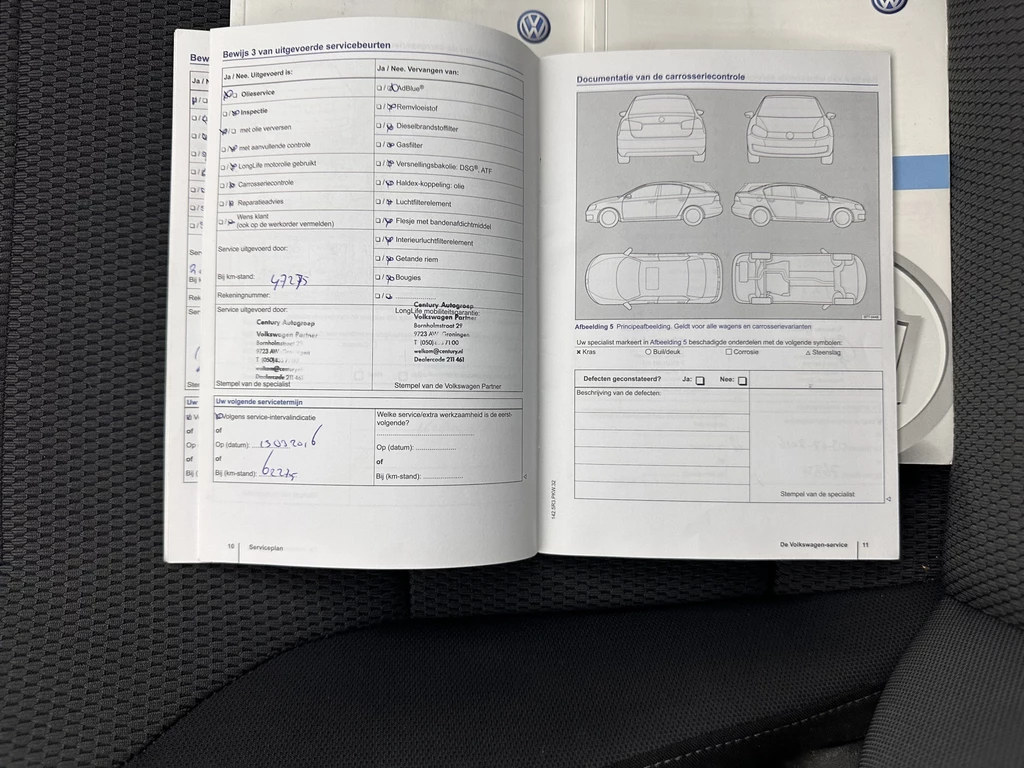 Bewijs 3 van uitgevoerde servicebeurten
Ja / Nee. Uitgevoerd is:
Olieservice
Inspectie
met olie verversen
met aanvullende controle
LongLife motorolie gebruikt
Carrosseriecontrole
Reparatieadvies
Wens klant
(ook op de werkorder vermelden)
Service uitgevoerd door:
Bij km-stand: 47275
Rekeningnummer:
Service uitgevoerd door:
Century Autogroep
Volkswagen Partner
Bornholmstraat 29
9723 AW
Dealercode 211 461
Stempel van de specialist
Ja / Nee. Vervangen van:
AdBlue®
Remvloeistof
Dieselbrandstoffilter
Gasfilter
Versnellingsbakolie: DSG®, ATF
Haldex-koppeling: olie
Luchtfilterelement
Flesje met bandenafdichtmiddel
Interieurluchtfilterelement
Getande riem
Bougies
LongLife mobiliteitsgarantie:
Century Autogroep
Volkswagen Partner
Bornholmstraat 29
9723 AW Groningen
welkom@century.nl
Dealercode 211 461
Stempel van de Volkswagen Partner
Uw volgende servicetermijn
Volgens service-intervalindicatie
of
Op (datum): 13032016
of
Bij (km-stand): 62275
Welke service/extra werkzaamheid is de eerst-
volgende?
Op (datum):
of
Bij (km-stand):
10 Serviceplan
Documentatie van de carrosseriecontrole
Afbeelding 5 Principeafbeelding. Geldt voor alle wagens en carrosserievarianten
Uw specialist markeert in Afbeelding 5 beschadigde onderdelen met de volgende symbolen:
Kras Buil/deuk Corrosie Steenslag
Defecten geconstateerd? Ja: Nee:
Beschrijving van de defecten:
Stempel van de specialist
142.5R3.PKW.32
De Volkswagen-service 11